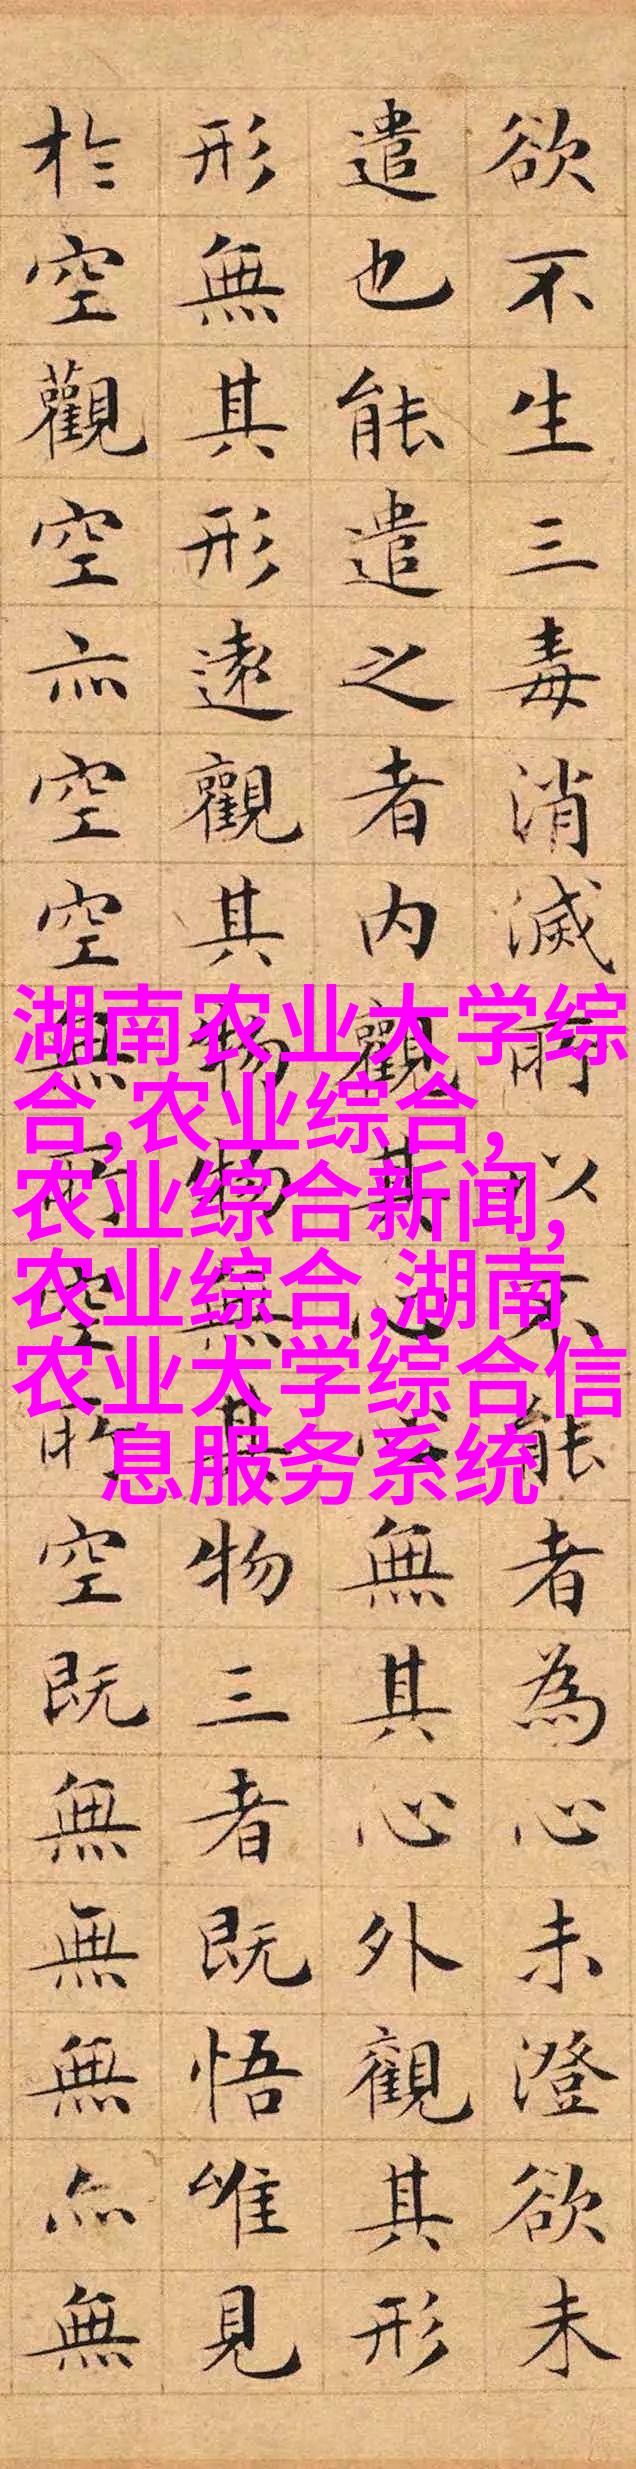 欲不生三毒消滅所以不能者為心未澄欲未
遣也能遣之者内觀其心心無其心外觀其形
形無其形遠觀其物物無其物三者既悟唯見
於空觀空亦空空無所空所空既無無無亦無
湖南农业大学综
合,农业综合,
农业综合新闻,
农业综合,湖南
农业大学综合信
息服务系统